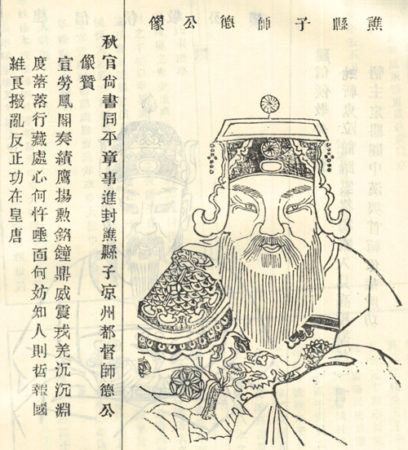 譙縣子師德公像
秋官尚書同平章事進封譙縣子凉州都督師德公
像贊
宣勞鳳閣奏績鷹揚勲銘鐘鼎威震戎羌沉沉淵
度落落行藏處心何忤唾面何妨知人則哲報國
維良撥亂反正功在皇唐